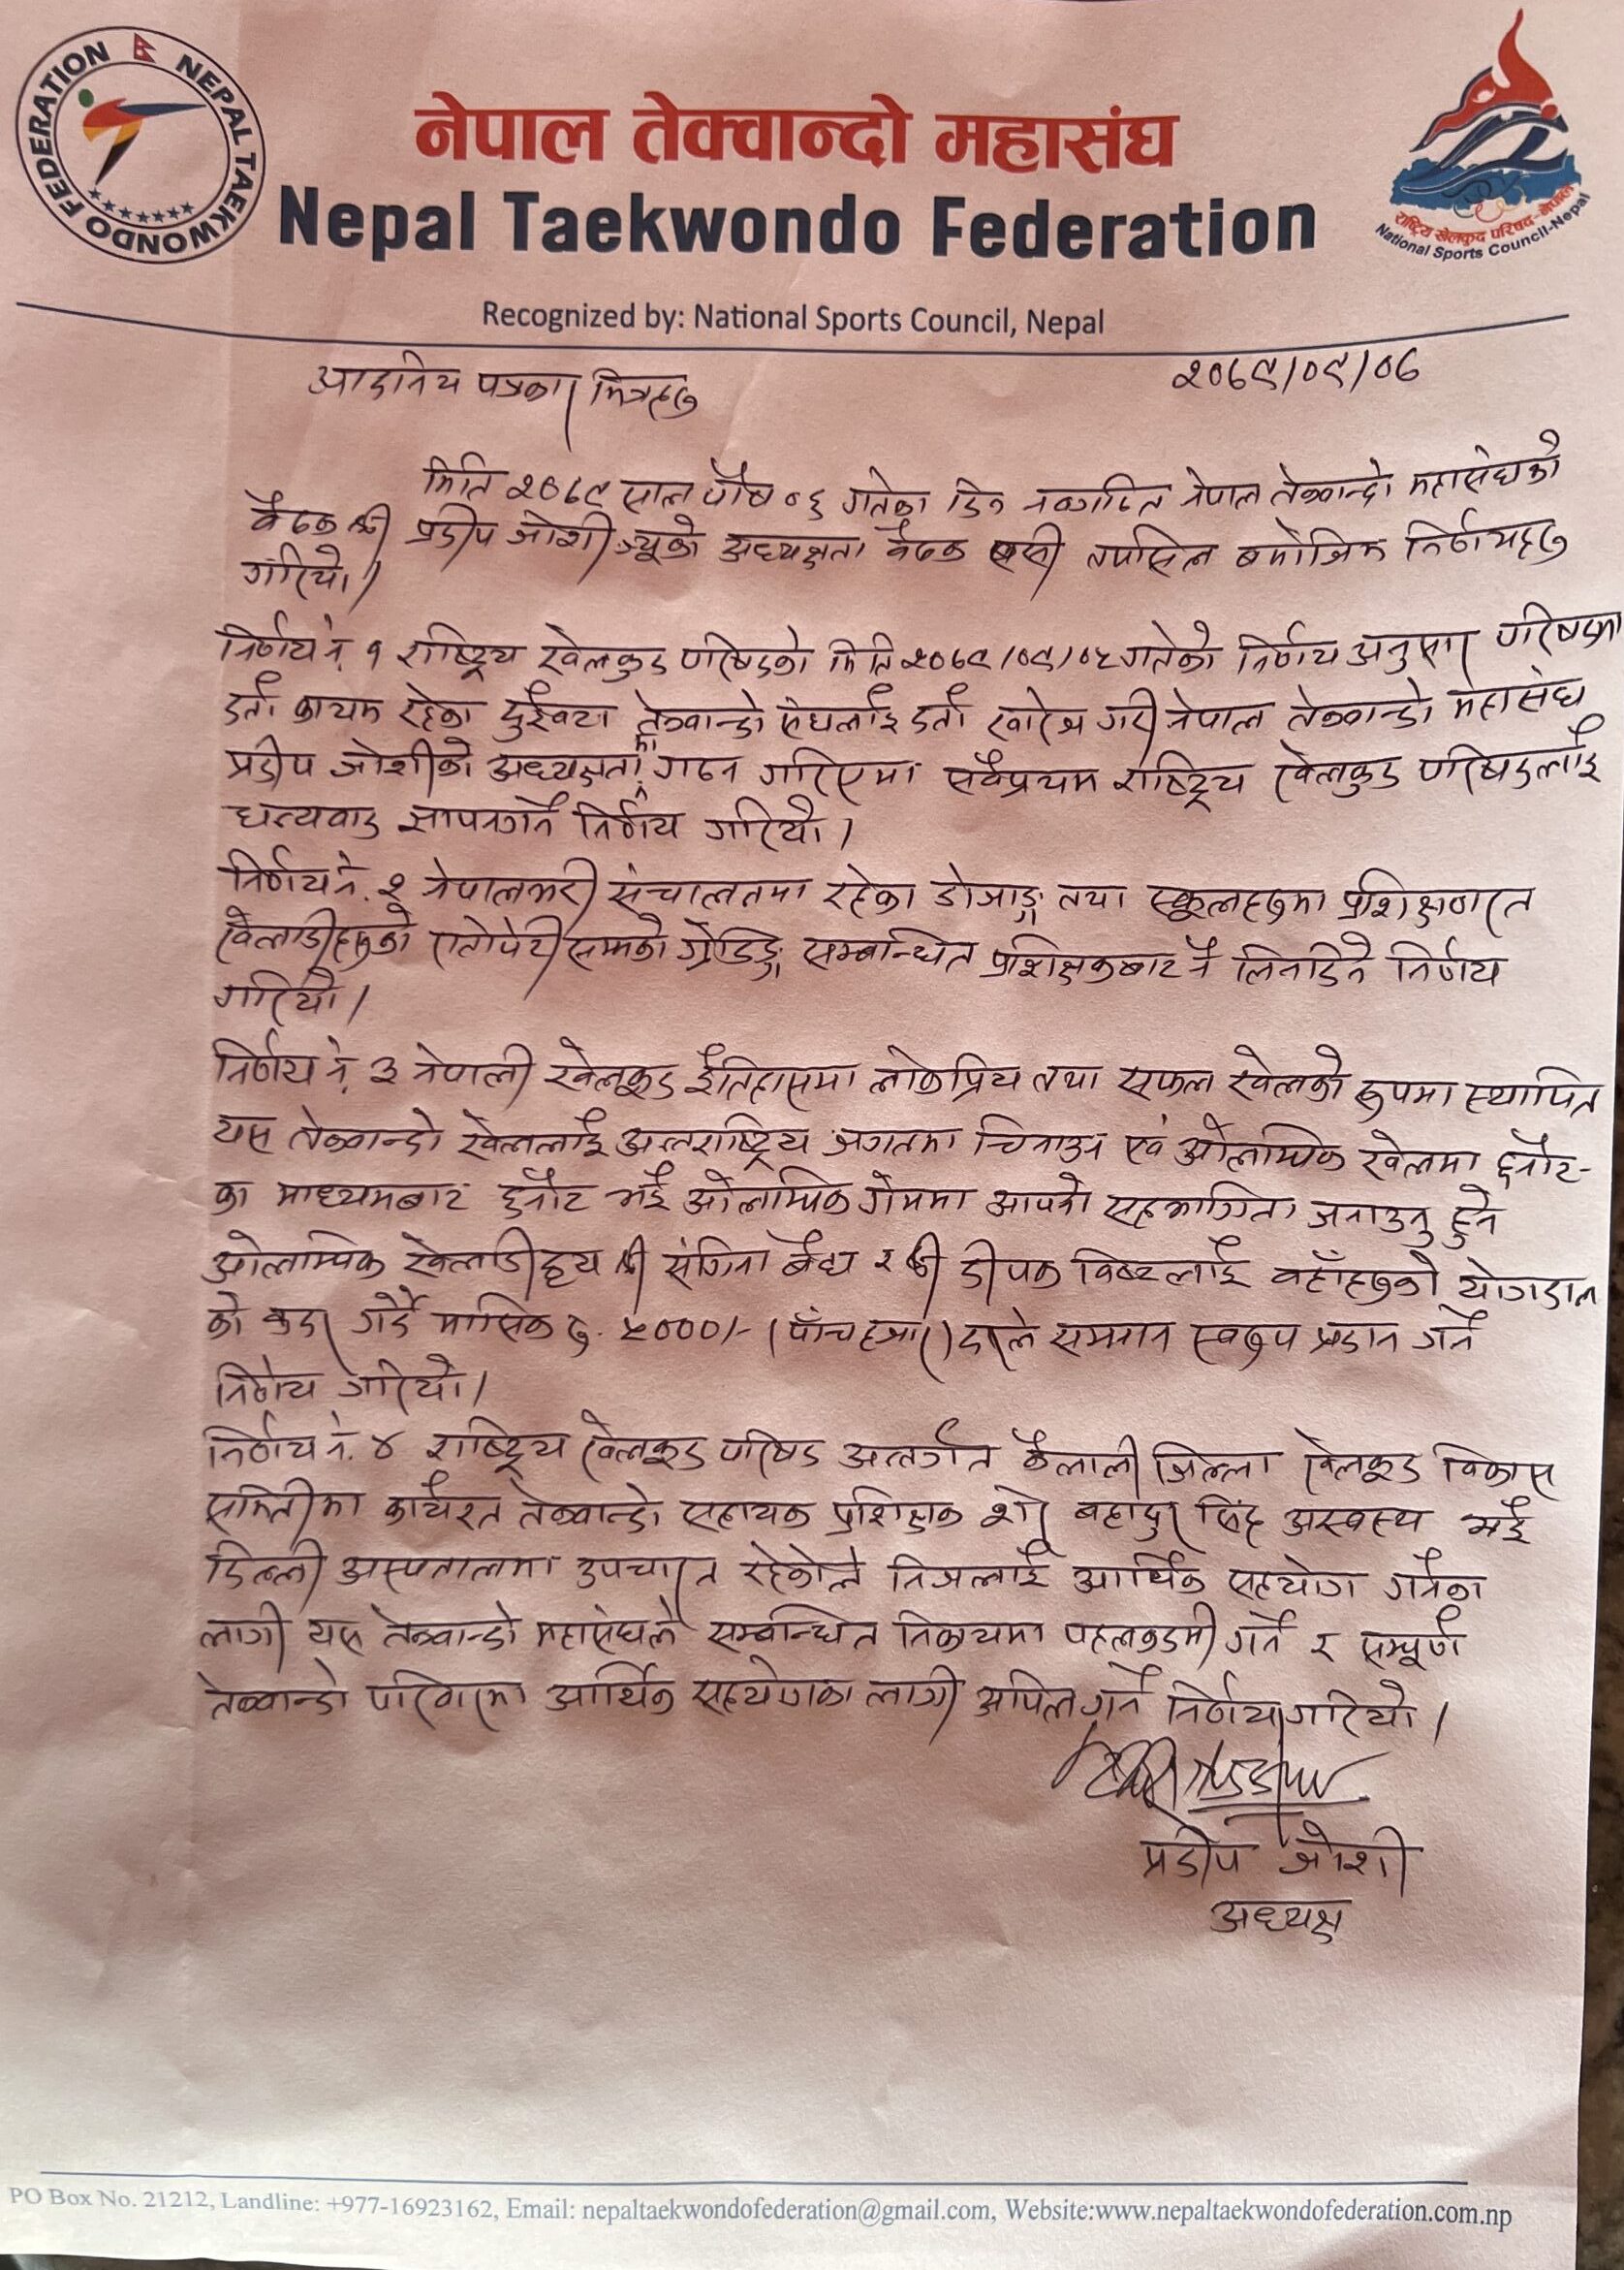 NEPAL TAEKWONDO FEDERATION
नेपाल तेक्वान्दो महासंघ
Nepal Taekwondo Federation
राष्ट्रिय खेलकुद परिषद-नेपाल
National Sports Council-Nepal
Recognized by: National Sports Council, Nepal
आदरनिय पत्रकार मित्रहरु
२०७९/०९/०७
मिति २०७९ साल पौष ०६ गतेका दिन नवगठित नेपाल तेक्वान्दो महासंघको
बैठक श्री प्रदीप जोशी ज्यूको अध्यक्षता बैठक बसी तपसिल बमोजिम निर्णयहरु
गरियो।
निर्णय नं. १ राष्ट्रिय खेलकुद परिषदको मिति २०७९/०९/०५ गतेको निर्णय अनुसार परिषदमा
दर्ता कायम रहेका दुईवटा तेक्वान्दो संघलाई दर्ता खारेज गरी नेपाल तेक्वान्दो महासंघ
प्रदीप जोशीको अध्यक्षतामा गठन गरिएमा सर्वप्रथम राष्ट्रिय खेलकुद परिषदलाई
धन्यवाद ज्ञापनगर्ने निर्णय गरियो।
निर्णय नं. २ नेपालभरी संचालनमा रहेका डोजाङ्ग तथा स्कूलहरुमा प्रशिक्षणरत
खेलाडीहरुको रातोपेटी सम्मको ग्रेडिङ्ग सम्बन्धित प्रशिक्षकबाट नै लिनदिने निर्णय
गरियो।
निर्णय नं. ३ नेपाली खेलकूद ईतिहासमा लोकप्रिय तथा सफल खेलको रूपमा स्थापित
यस तेक्वान्दो खेललाई अन्तराष्ट्रिय जगतमा चिनाउन एवं ओलम्पिक खेलमा छनौट-
का माध्यमबाट छनौट भई ओलम्पिक गेममा आफ्नो सहभागिता जनाउनु हुने
ओलम्पिक खेलाडी द्वय श्री संगिना बैद्य र श्री दीपक विष्टलाई वहाँहरुको योगदान
को कदर गर्दै मासिक रु. ५०००/- (पाँच हजार) दरले सम्मान स्वरुप प्रदान गर्ने
निर्णय गरियो।
निर्णय नं. ४ राष्ट्रिय खेलकूद परिषद अन्तर्गत कैलाली जिल्ला खेलकूद विकास
समितीमा कार्यरत तेक्वान्दो सहायक प्रशिक्षक शेर बहादुर सिंह अस्वस्थ भई
दिल्ली अस्पतालमा उपचाररत रहेकोले निजलाई आर्थिक सहयोग गर्नका
लागी यस तेक्वान्दो महासंघले सम्बन्धित निकायमा पहलकदमी गर्ने र सम्पूर्ण
तेक्वान्दो परिवारमा आर्थिक सहयोगका लागी अपिल गर्ने निर्णय गरियो।
प्रदीप जोशी
अध्यक्ष
PO Box No. 21212, Landline: +977-16923162, Email: nepaltaekwondofederation@gmail.com, Website:www.nepaltaekwondofederation.com.np